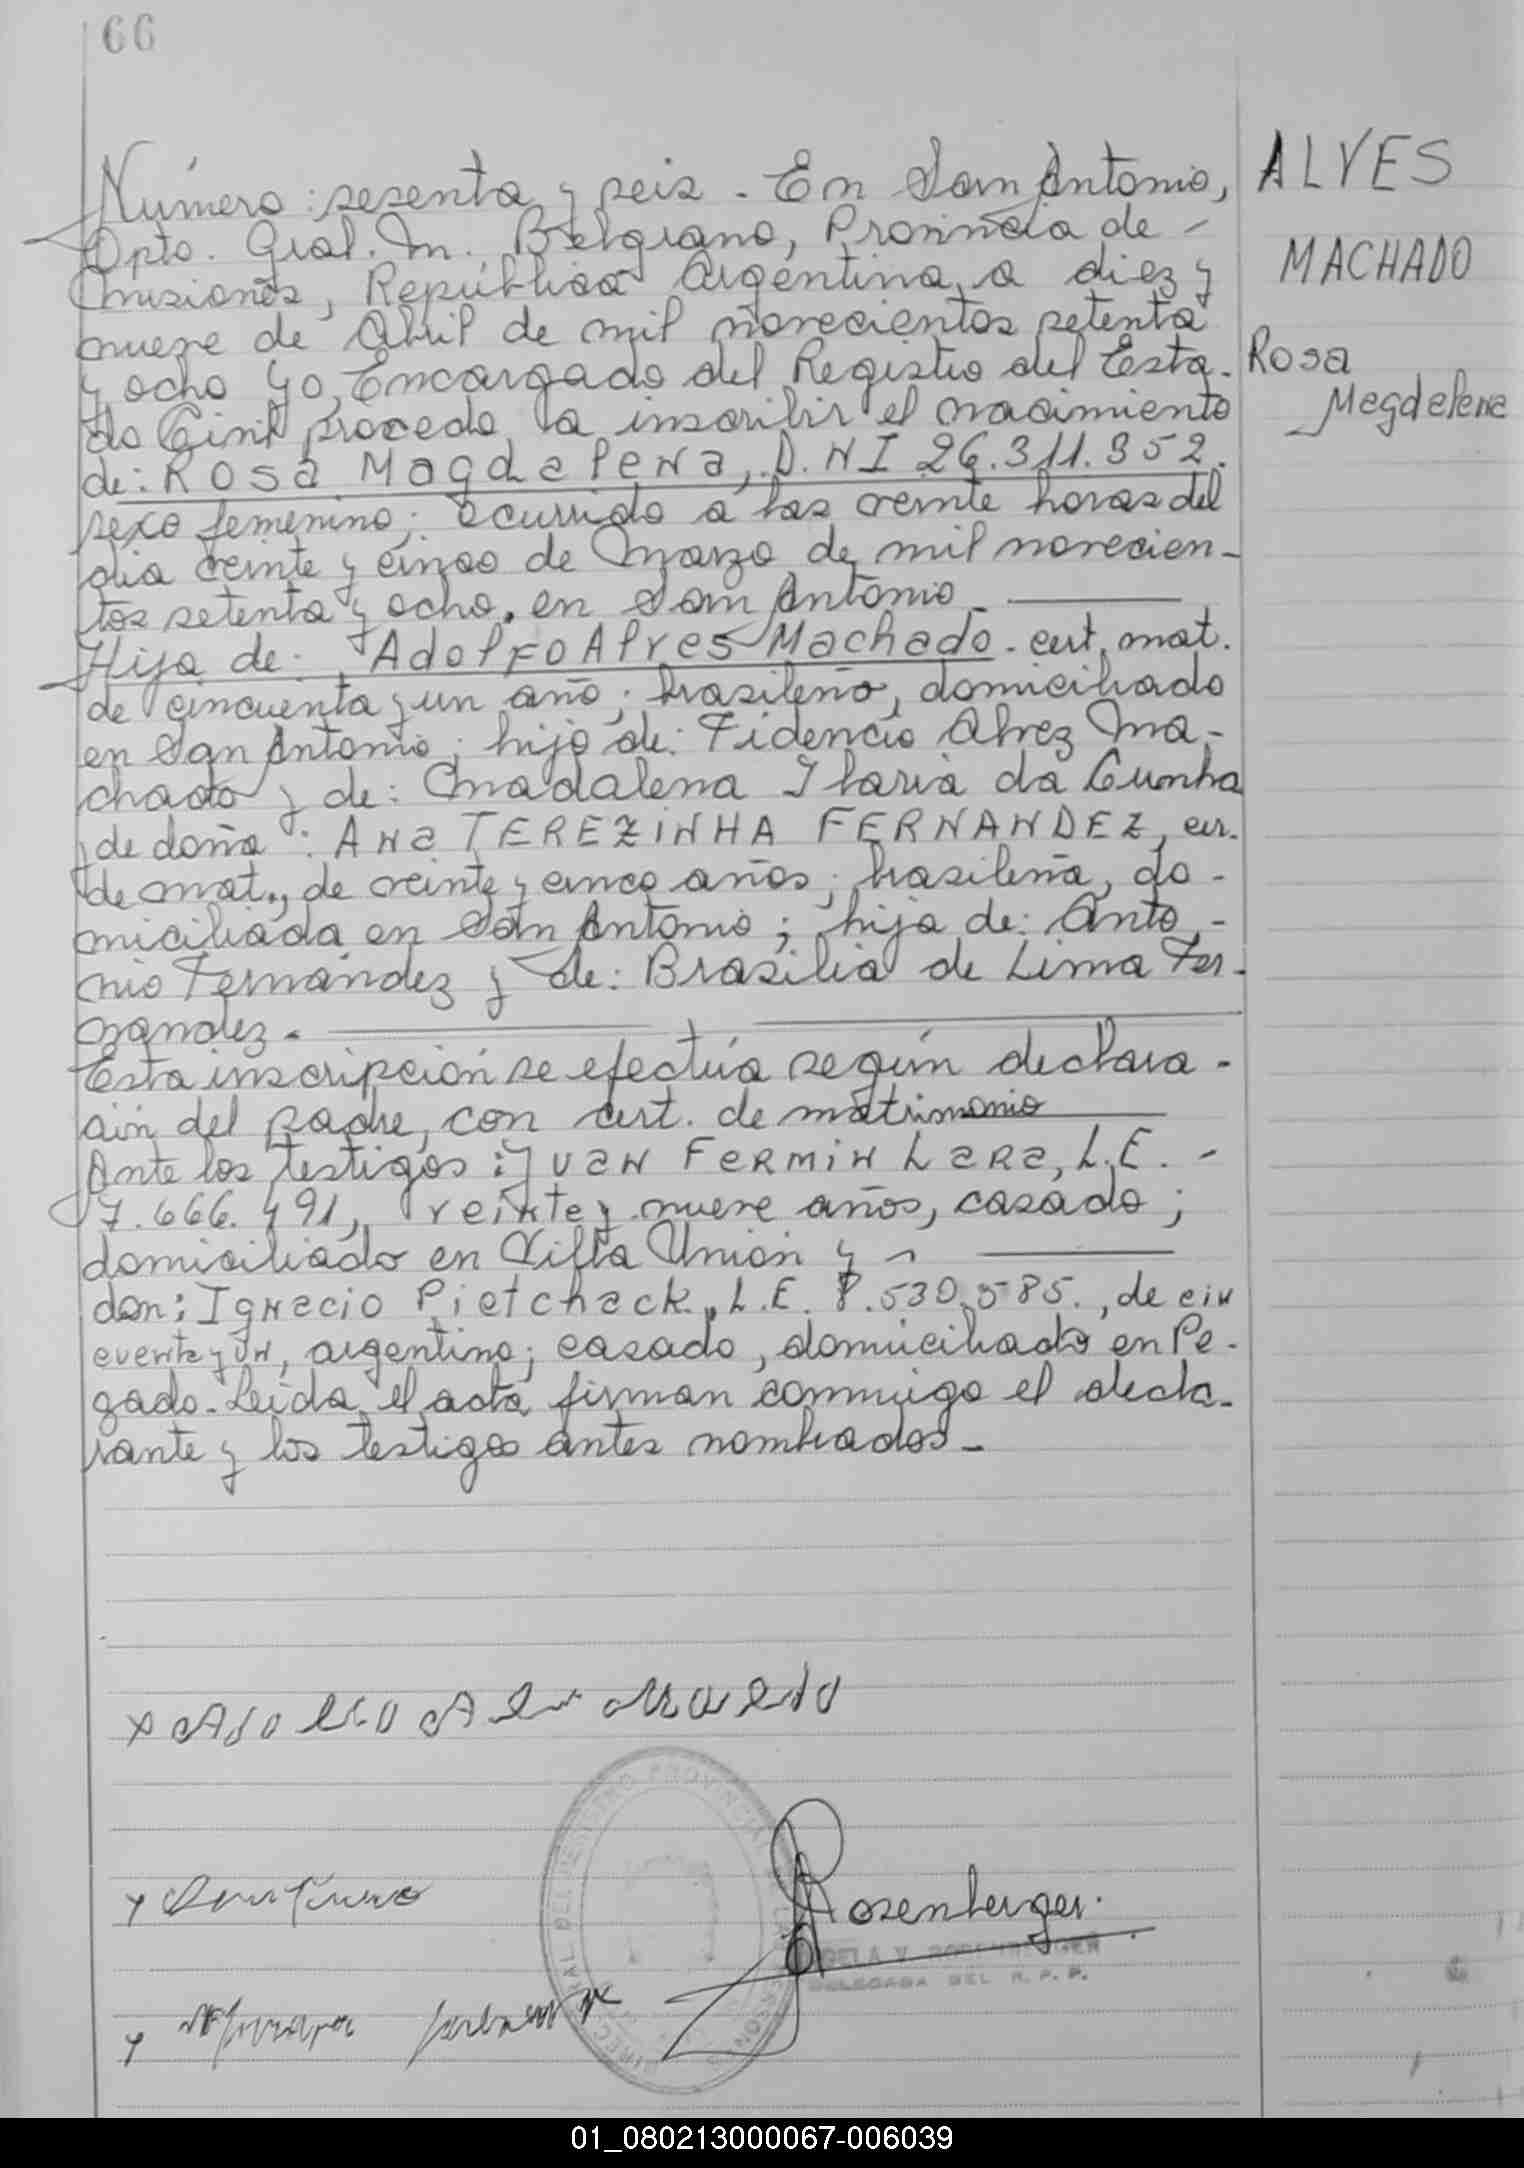 66
Número: sesenta y seis. En San Antonio,
Dpto. Gral. M. Belgrano, Provincia de -
Misiones, República Argentina, a diez y
nueve de Abril de mil novecientos setenta
y ocho yo, Encargado del Registro del Esta-
do Civil procedo a inscribir el nacimiento
de: Rosa Magdalena, D.NI 26.311.352.
sexo femenino; ocurrido a las veinte horas del
dia veinte y cinco de Marzo de mil novecien-
tos setenta y ocho. en San Antonio -
Hija de: Adolfo Alves Machado - cert. mat.
de cincuenta y un año; brasileño, domiciliado
en San Antonio; hijo de: Fidencio Alvez Ma-
chado y de: Madalena Ilaria da Cunha
y de doña: Ana TEREZINHA FERNANDEZ, cer.
de mat., de veinte y cinco años; brasileña, do-
miciliada en San Antonio; hija de: Anto-
nio Fernández y de: Brasilia de Lima Fer-
nandez.-
Esta inscripción se efectúa según declara-
ción del padre, con cert. de matrimonio
Ante los testigos: Juan Fermin Lara, L.E. -
7.666.491, veinte y nueve años, casado;
domiciliado en Villa Unión y -
don: Ignacio Pietchack, L.E. 8.530.585., de cin
cuenta y un, argentino; casado, domiciliado en Pe-
gado. Leída el acta firman conmigo el decla-
rante y los testigos antes nombrados -
ALVES
MACHADO
Rosa
Magdalena
Rosenberger.
DELEGADA DEL R.P.P.
01_080213000067-006039